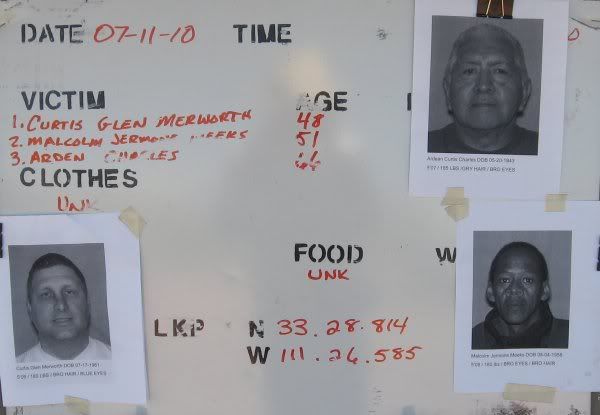 DATE 07-11-10 TIME
VICTIM AGE
1. CURTIS GLEN MERWORTH 48
2. MALCOLM JERMONE MEEKS 51
3. ARDEN CHARLES
CLOTHES
UNK
FOOD W
UNK
LKP N 33.28.814
W 111.26.585
Ardean Curtis Charles DOB 05-20-1943
5'07 / 185 LBS /GRY HAIR / BRO EYES
Curtis Glen Merworth DOB 07-17-1961
5'09 / 180 LBS / BRO HAIR / BLUE EYES
Malcolm Jermone Meeks DOB
5'09 / 160 lbs / BRO EYES / BRO HAIR